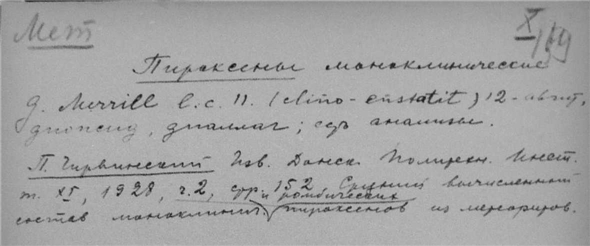 Мет
X/119
Пироксены моноклинические
g. Merrill l.c. 11. (clino-enstatit) 12-авгит,
диопсид, диаллаг; анализы.
П. Чирвинский Изв. Донск. Политехн. Инст.
т. XI, 1928, ч.2, стр. 152 Средний вычисленный
состав моноклинич. и ромбических пироксенов из метеоритов.